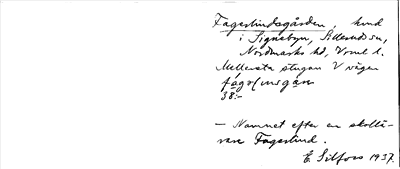 Fagerlindsgården, hmd
i Signebyn, Sillerud sn,
Nordmarks hd, Vrml l.
Mellersta stugan V vägen
38:-
– Namnet efter en skollä-
rare Fagerlind.
E. Silfors 1937.